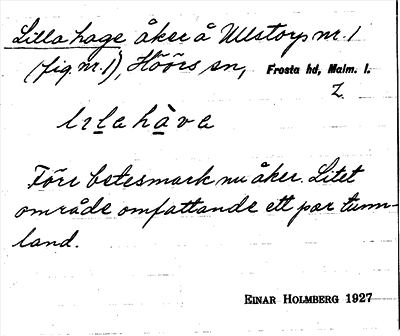 Lilla hage åker å Ullstorp nr. 1
(fig. nr. 1), Höörs sn, Frosta hd, Malm. l.
Z.
lılahàva
Förr betesmark nu åker. Litet
område omfattande ett par tunn-
land.
EINAR HOLMBERG 1927